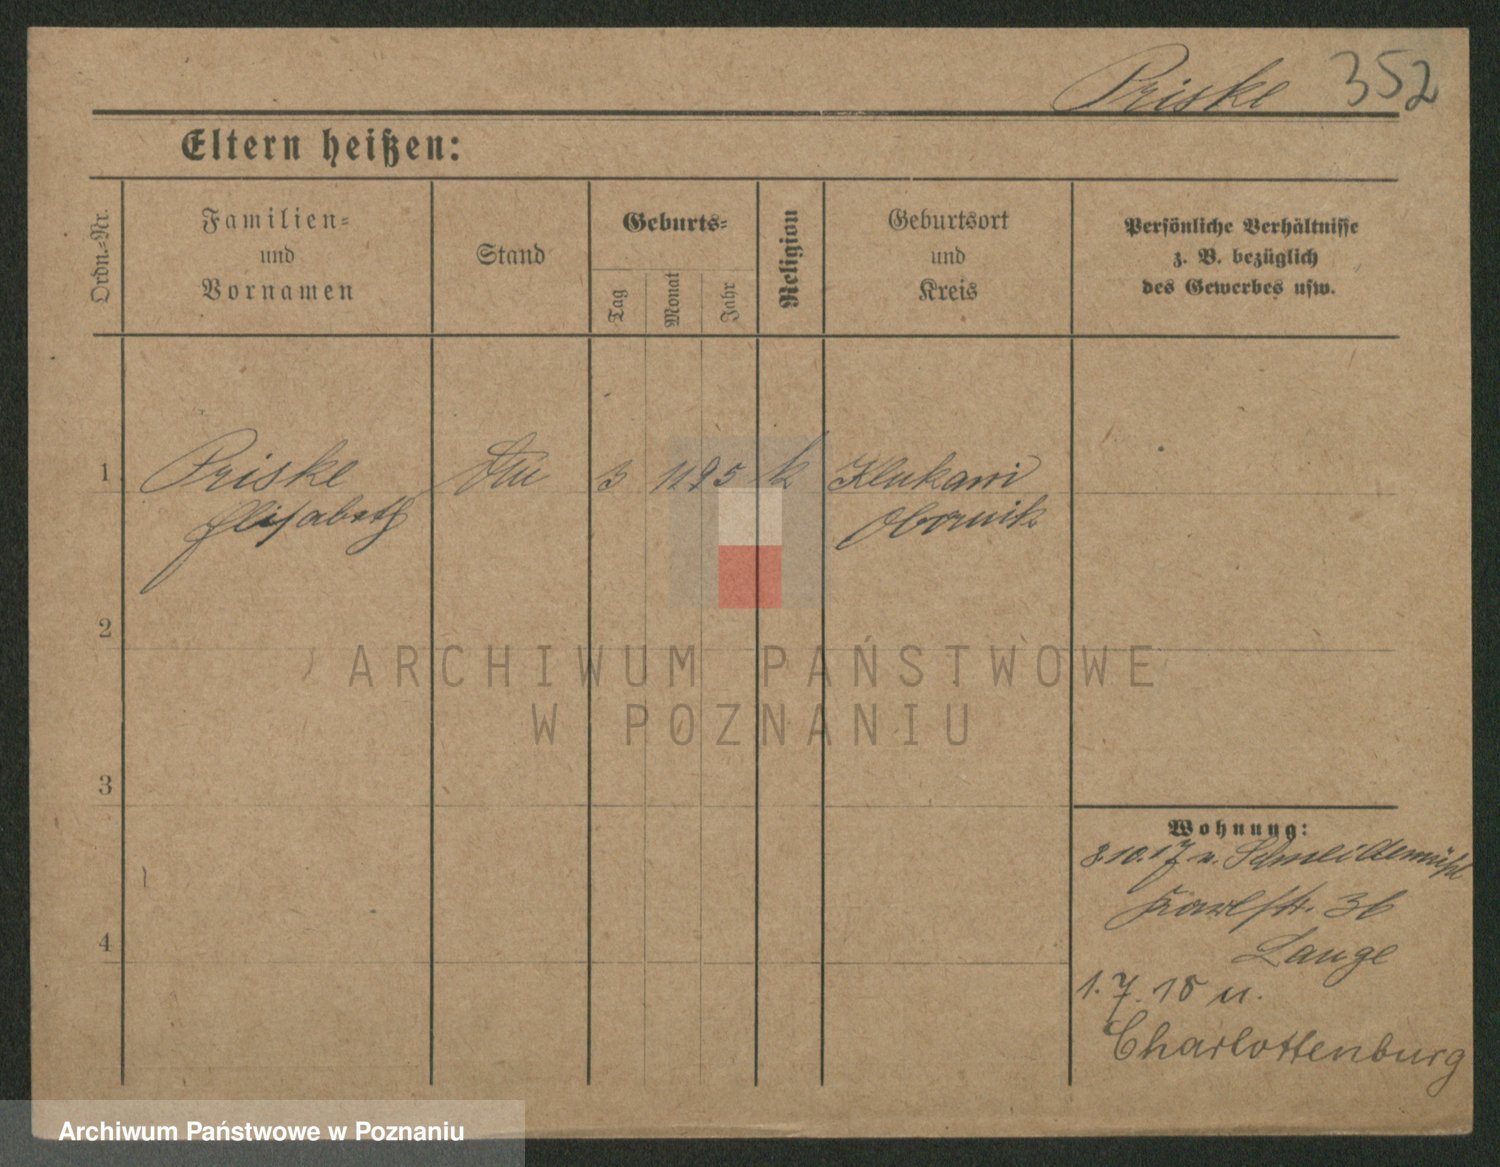 Priske 352
Eltern heißen:
Ordn.=Nr.
Familien=
und
Vornamen
Stand
Geburts=
Tag
Monat
Jahr
Religion
Geburtsort
und
Kreis
Persönliche Verhältnisse
z. B. bezüglich
des Gewerbes usw.
1 Priske 3 11 95 k
Elisabeth Obornik
2
3
4
Wohnung:
8.10.17 v. Schneidemühl
36
Lange
1.7.18 u.
Charlottenburg
ARCHIWUM PAŃSTWOWE
W POZNANIU
Archiwum Państwowe w Poznaniu